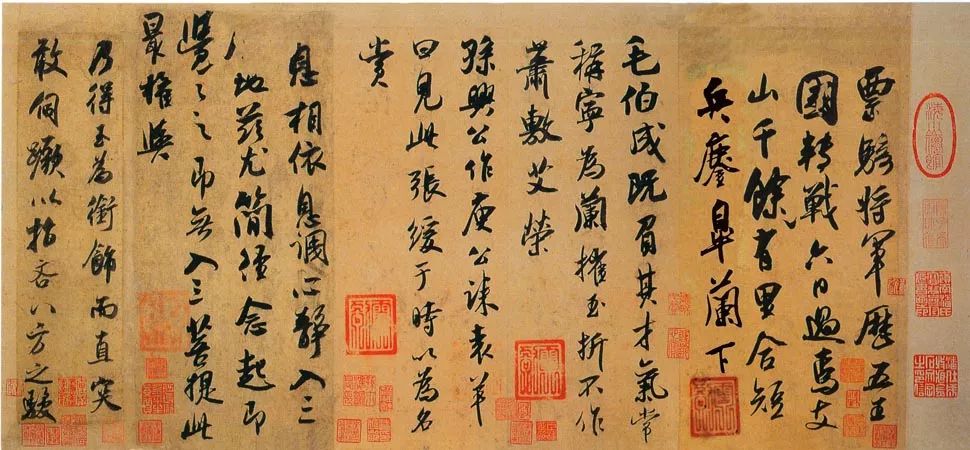 票騎將軍歷五王
國轉戰六日過焉支
山千餘有里合短
兵鏖皐蘭下
毛伯成既負其才氣常
稱寧為蘭摧玉折不作
蕭敷艾榮
孫興公作庾公誄袁羊
曰見此張緩于時以為名
賞
息相依息調心靜入三
地茲尤簡徑念起即
覺〻之即無入三菩提此
最權輿
乃得玉為銜飾而直突
敢伺蹶以指吝八方之駿